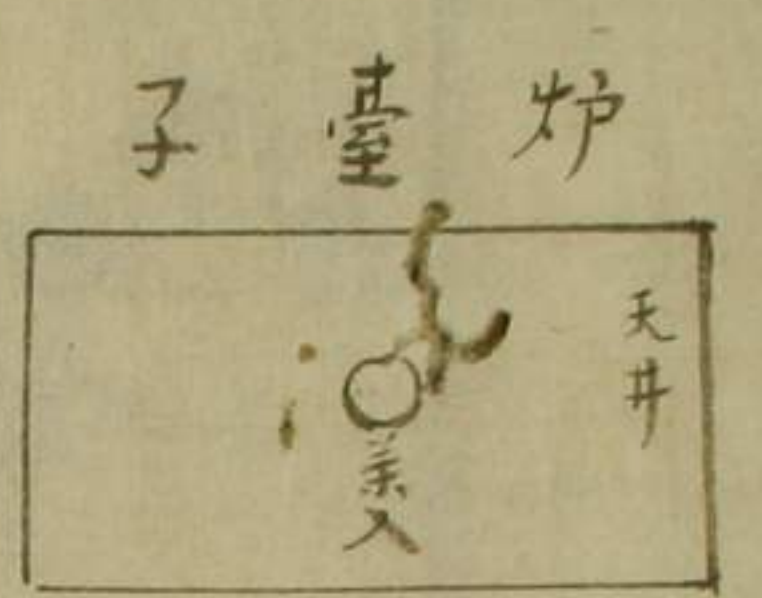 炉臺子
天井
茶入